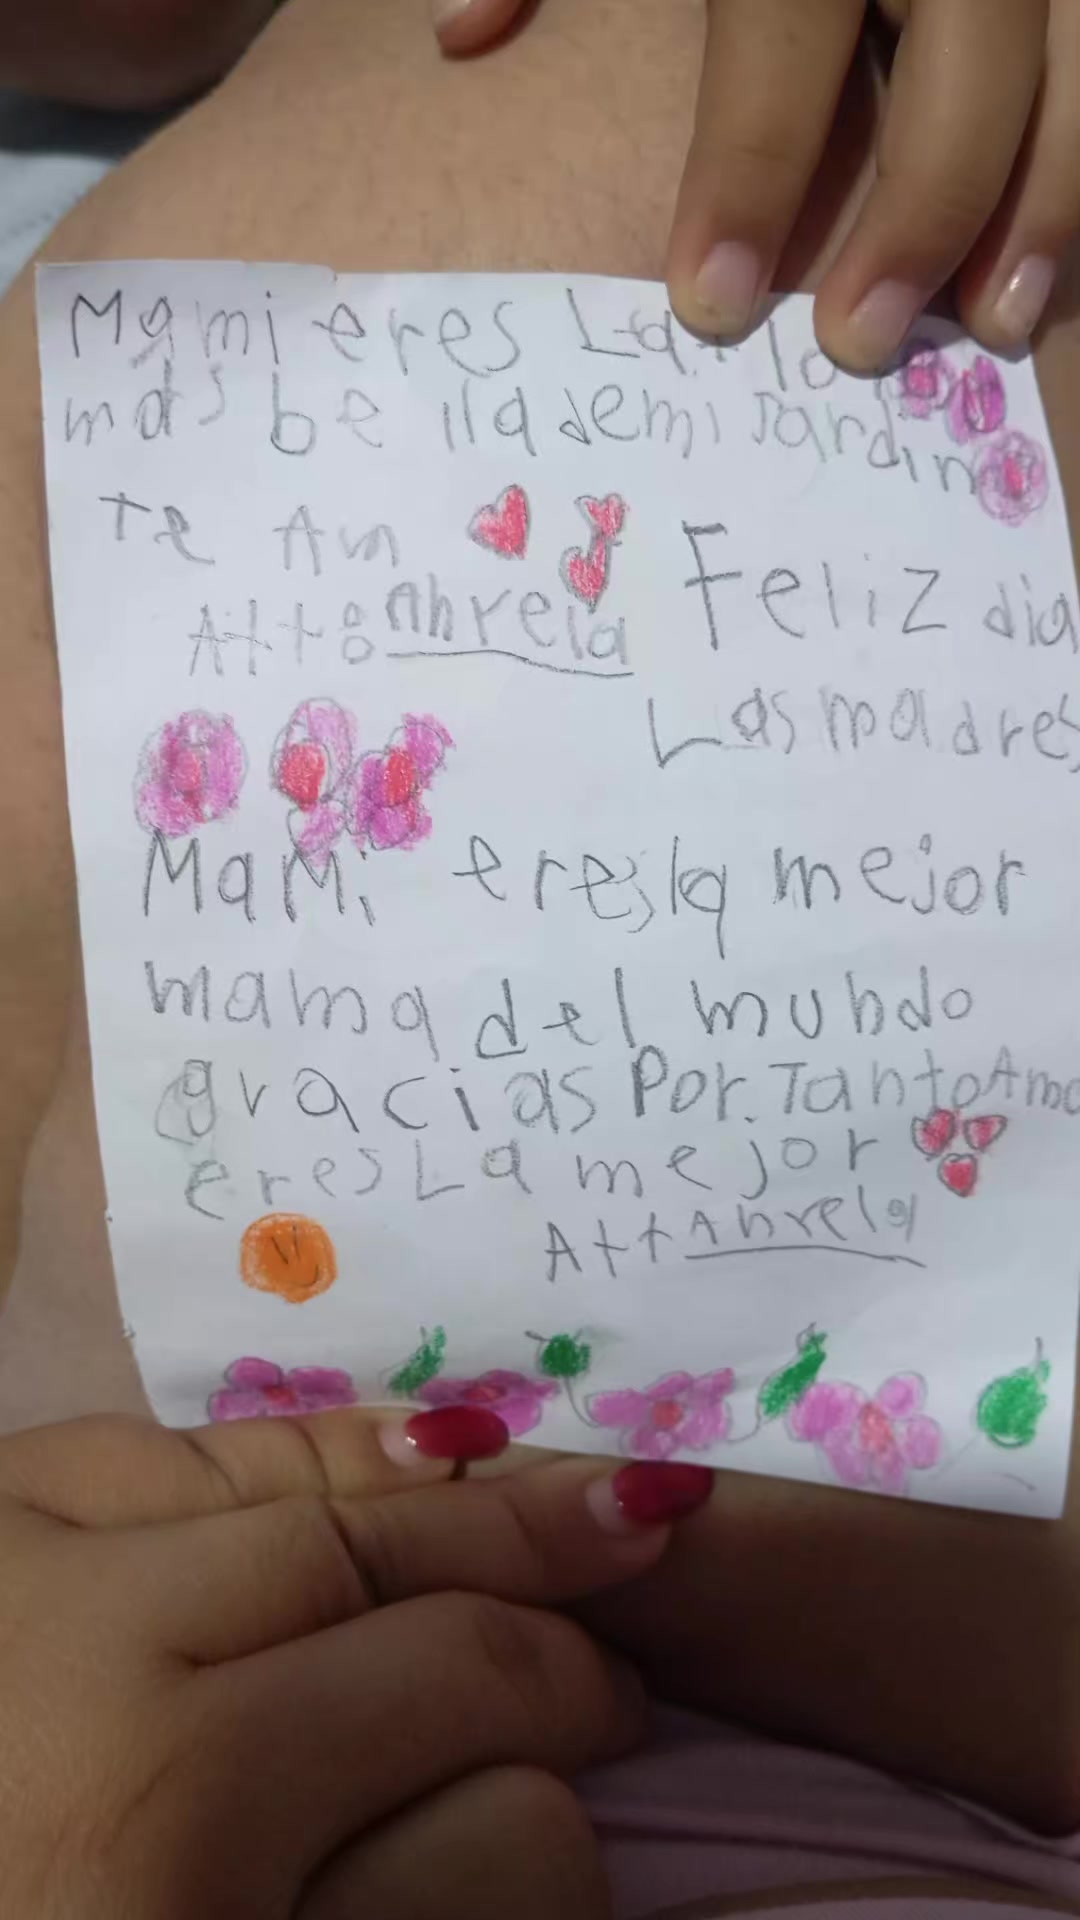 Mami eres La flo
más be lla demi Jardin
te Am
Att: Ahrela
Feliz dia
Las madres
MaMi eres la mejor
mama del muhdo
gracias Por. Tahto Amo
eres La mejor
Att Ahrela